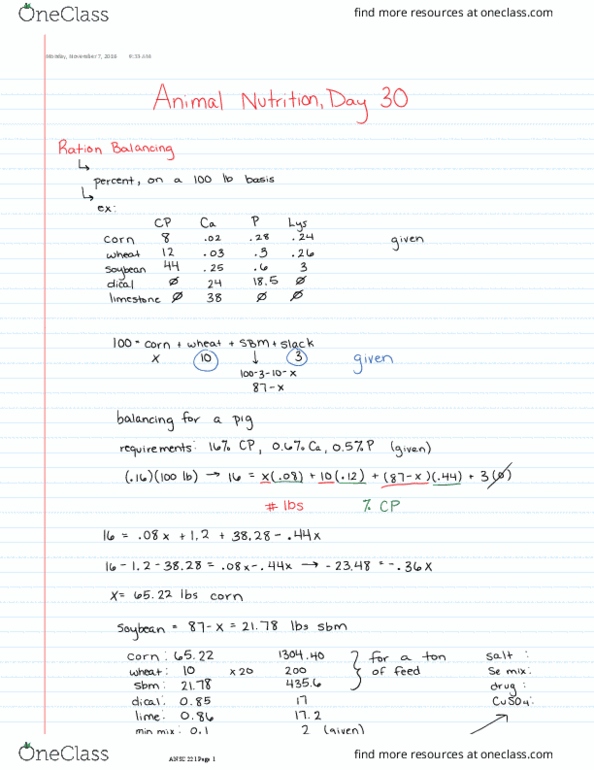 OneClass
find more resources at oneclass.com
Monday, November 7, 2016 9:55 AM
Animal Nutrition, Day 30
Ration Balancing
↳ percent, on a 100 lb basis
↳ ex:
CP Ca P Lys
corn 8 .02 .28 .24 given
wheat 12 .03 .3 .26
soybean 44 .25 .6 3
dical ∅ 24 18.5 ∅
limestone ∅ 38 ∅ ∅
100 = corn + wheat + SBM + slack
x 10 ↓ 3 given
100-3-10-x
87-x
balancing for a pig
requirements: 16% CP, 0.6% Ca, 0.5% P (given)
(.16)(100 lb) → 16 = x(.08) + 10(.12) + (87-x)(.44) + 3(∅)
# lbs % CP
16 = .08x + 1.2 + 38.28 - .44x
16 - 1.2 - 38.28 = .08x - .44x → -23.48 = -.36x
x = 65.22 lbs corn
soybean = 87-x = 21.78 lbs sbm
corn: 65.22 1304.40 for a ton salt:
wheat: 10 x 20 200 of feed Se mix:
sbm: 21.78 435.6 drug:
dical: 0.85 17 CuSO4:
lime: 0.86 17.2
min mix: 0.1 2 (given)
OneClass
ANSC 221 Page 1
find more resources at oneclass.com